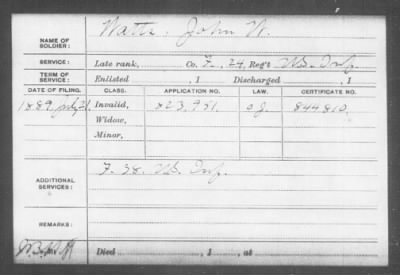 NAME OF SOLDIER: Watts, John W.
SERVICE: Late rank, Co. F, 24, Reg't Inf.
TERM OF SERVICE: Enlisted , 1 Discharged , 1
DATE OF FILING. CLASS. APPLICATION NO. LAW. CERTIFICATE NO.
1889 July Invalid, 723,951 O J 844810.
Widow,
Minor,
ADDITIONAL SERVICES: F. 38. Inf.
REMARKS:
Died , 1 , at